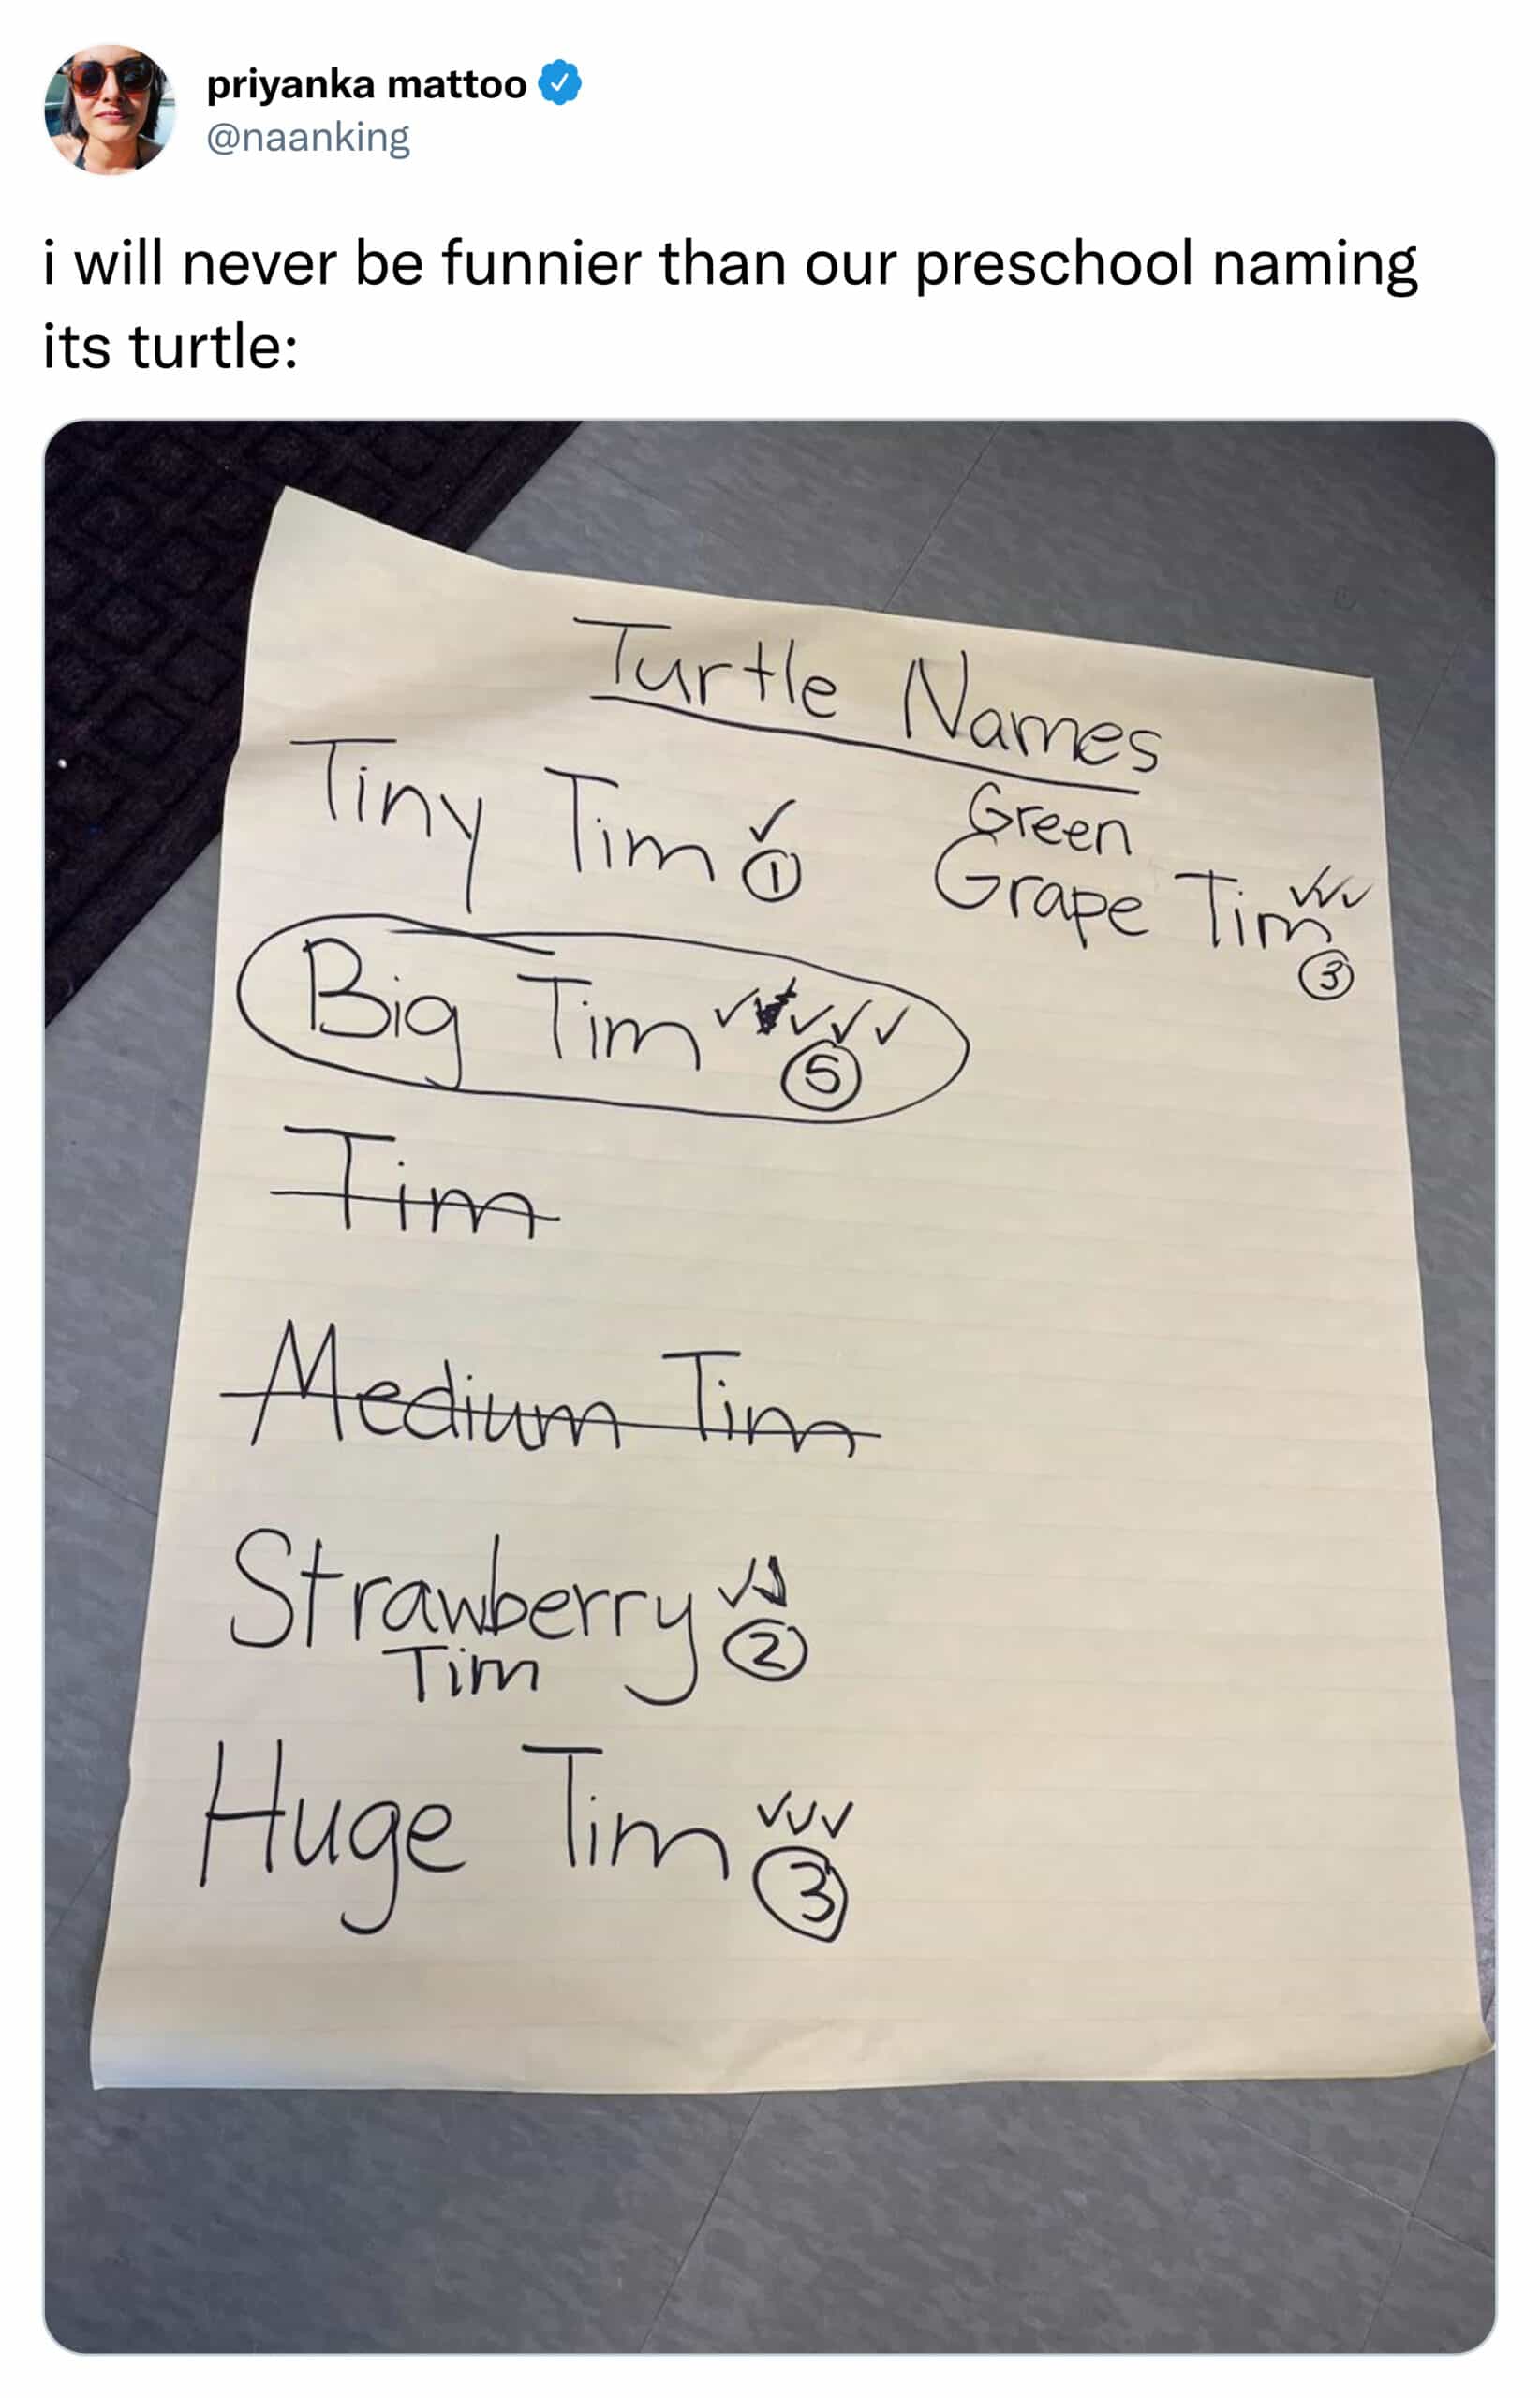 priyanka mattoo
@naanking
i will never be funnier than our preschool naming
its turtle:
Turtle Names
Tiny Tim ✓ 1
Green
Grape Tim ✓✓✓
3
Big Tim ✓✓✓✓✓
5
Tim
Medium Tim
Strawberry ✓✓
Tim 2
Huge Tim ✓✓✓
3